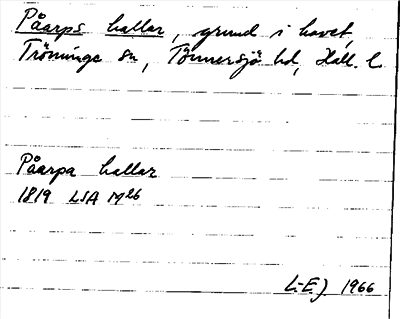 Påarps hallar, grund i havet,
Trönninge sn, Tönnersjö hd, Hall. l.
Påarpa hallar
1819 LSA M26
L-EJ 1966